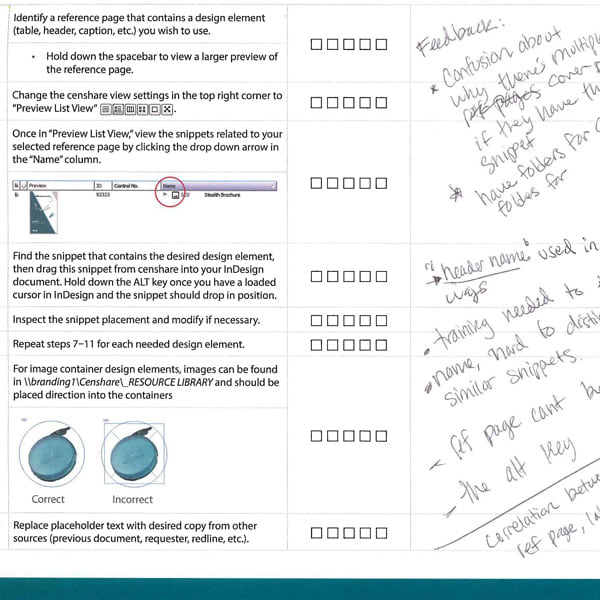 Identify a reference page that contains a design element
(table, header, caption, etc.) you wish to use.
• Hold down the spacebar to view a larger preview of
the reference page.
Change the censhare view settings in the top right corner to
"Preview List View"
Once in "Preview List View," view the snippets related to your
selected reference page by clicking the drop down arrow in
the "Name" column.
Preview ID Control No. Name
92323 Stealth Brochure
Find the snippet that contains the desired design element,
then drag this snippet from censhare into your InDesign
document. Hold down the ALT key once you have a loaded
cursor in InDesign and the snippet should drop in position.
Inspect the snippet placement and modify if necessary.
Repeat steps 7–11 for each needed design element.
For image container design elements, images can be found
in \\branding1\Censhare\_RESOURCE LIBRARY and should be
placed direction into the containers
Correct Incorrect
Replace placeholder text with desired copy from other
sources (previous document, requester, redline, etc.).
Feedback:
Confusion about
why there's multiple
ref pages cover
if they have th
snippet
have folders for
folder for
"header name" used in
ways
training needed to
name, hard to disti
similar snippets.
ref page cant b
the alt key
correlation betwe
ref page,